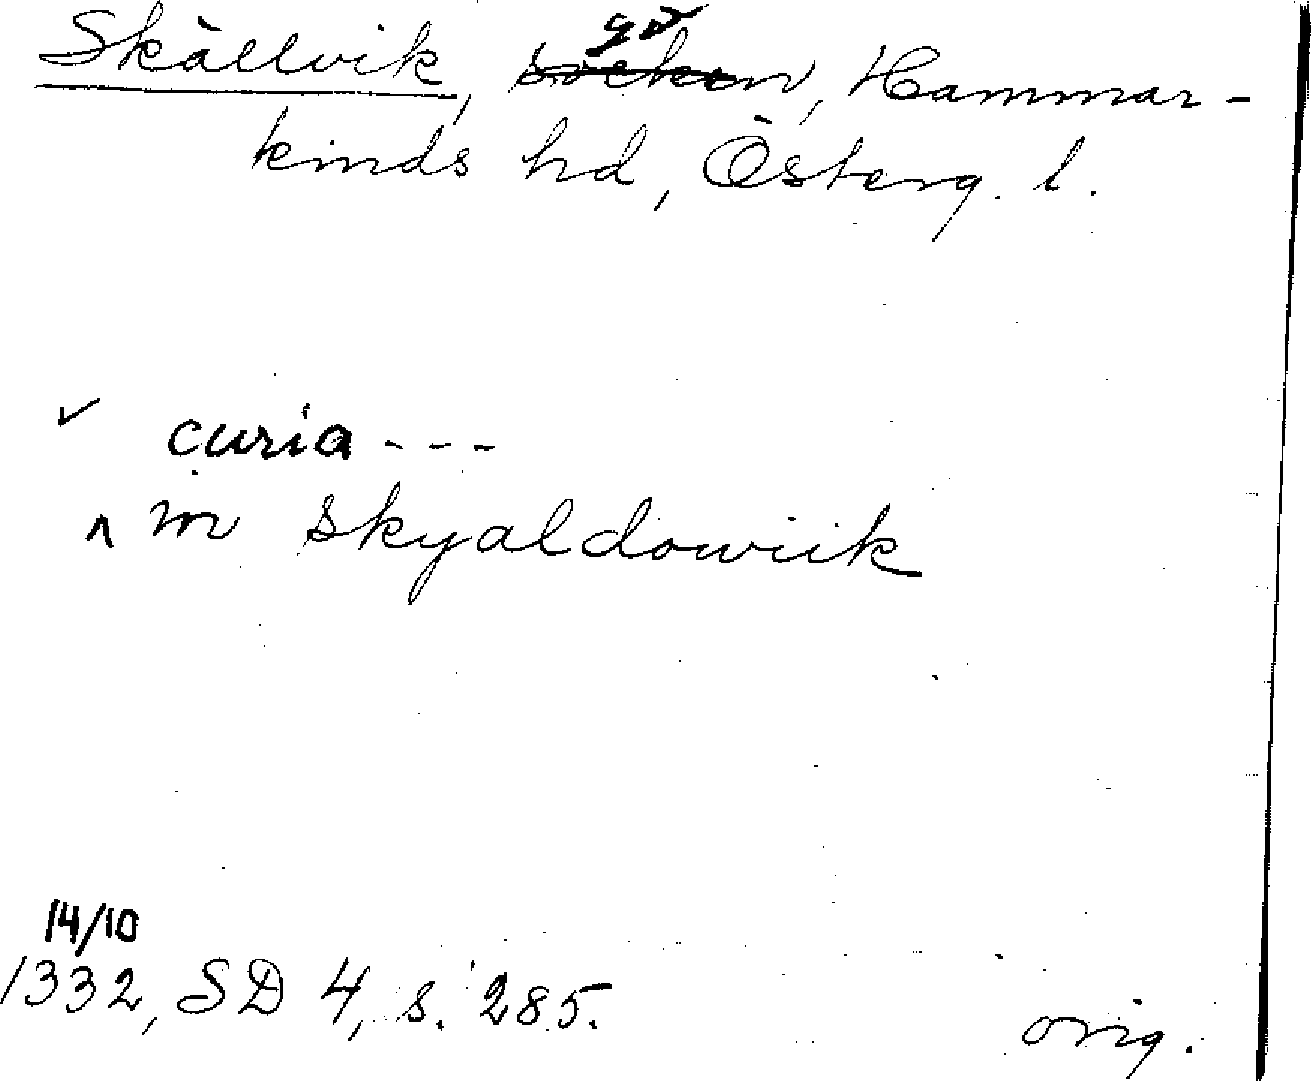 Skällvik, socken, gd, Hammar-
kinds hd, Österg. l.
✓ curia - - -
∧ in skyaldowiik
14/10
1332, SD 4, s. 285.
orig.